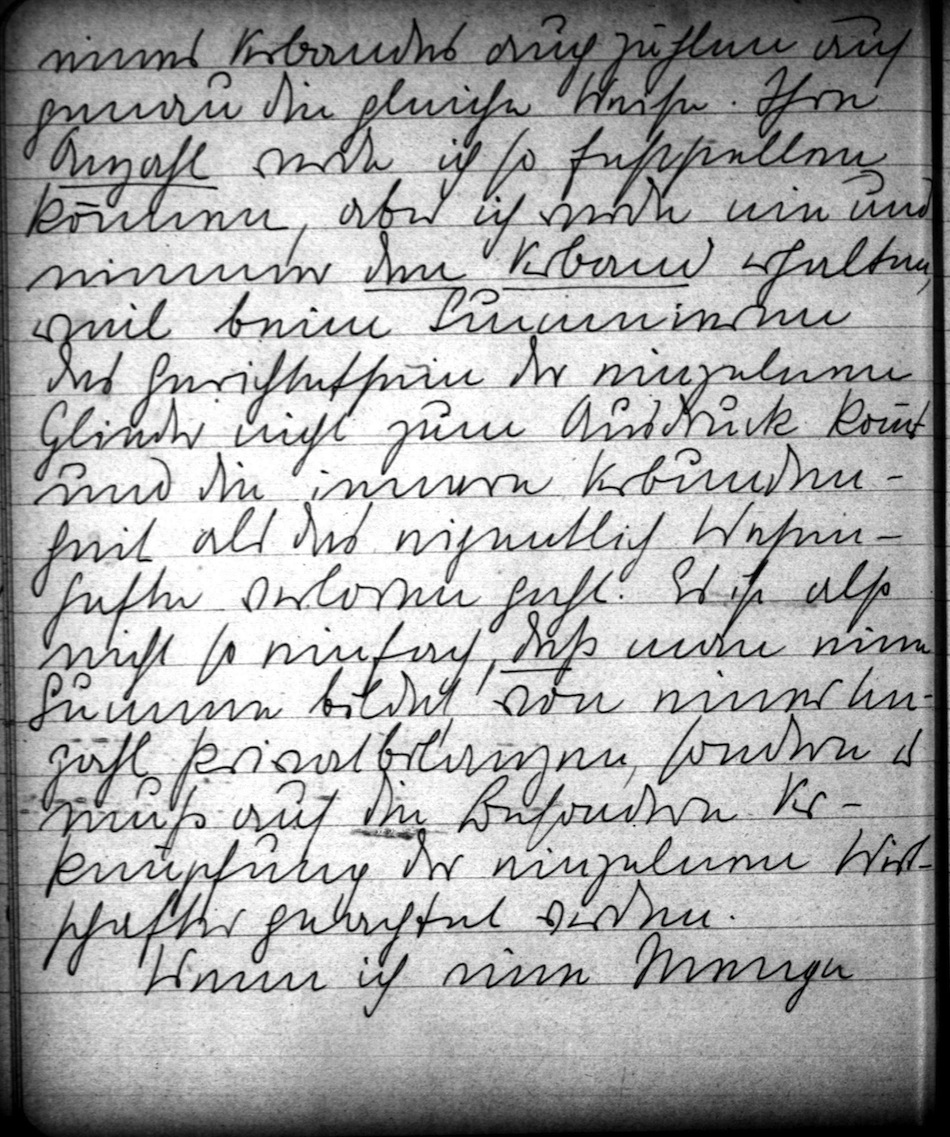 eines Verbandes auch zählen auf
genau die gleiche Weise. Ihre
Anzahl werde ich so feststellen
können, aber ich werde nie und
nimmer den Verband erhalten,
weil beim Summieren
das Gerichtetsein der einzelnen
Glieder nicht zum Ausdruck komt
und die innere Verbunden-
heit als das eigentlich Wesen-
hafte verloren geht. Es ist also
nicht so einfach, daß man eine
Summe bildet von einer An-
zahl Privatbilanzen, sondern es
muß auf die besondere Ver-
knüpfung der einzelnen Wirt-
schafter geachtet werden.
Wenn ich eine Menge